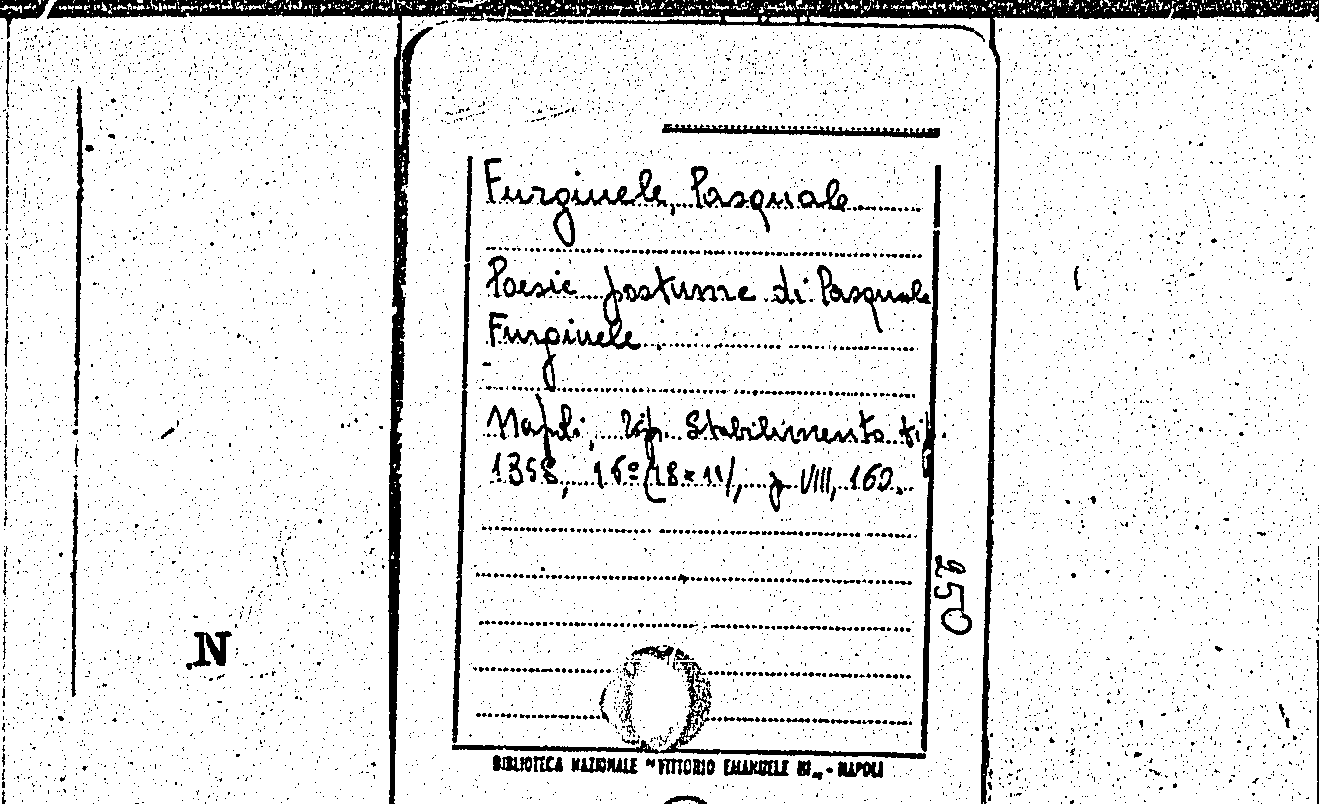 Furginele, Pasquale
Poesie postume di Pasquale
Furginele.
Napoli, Tip. Stabilimento tip.
1358, 16º (18×11), p. VIII, 160.
250
N
BIBLIOTECA NAZIONALE "VITTORIO EMANUELE III„ - NAPOLI